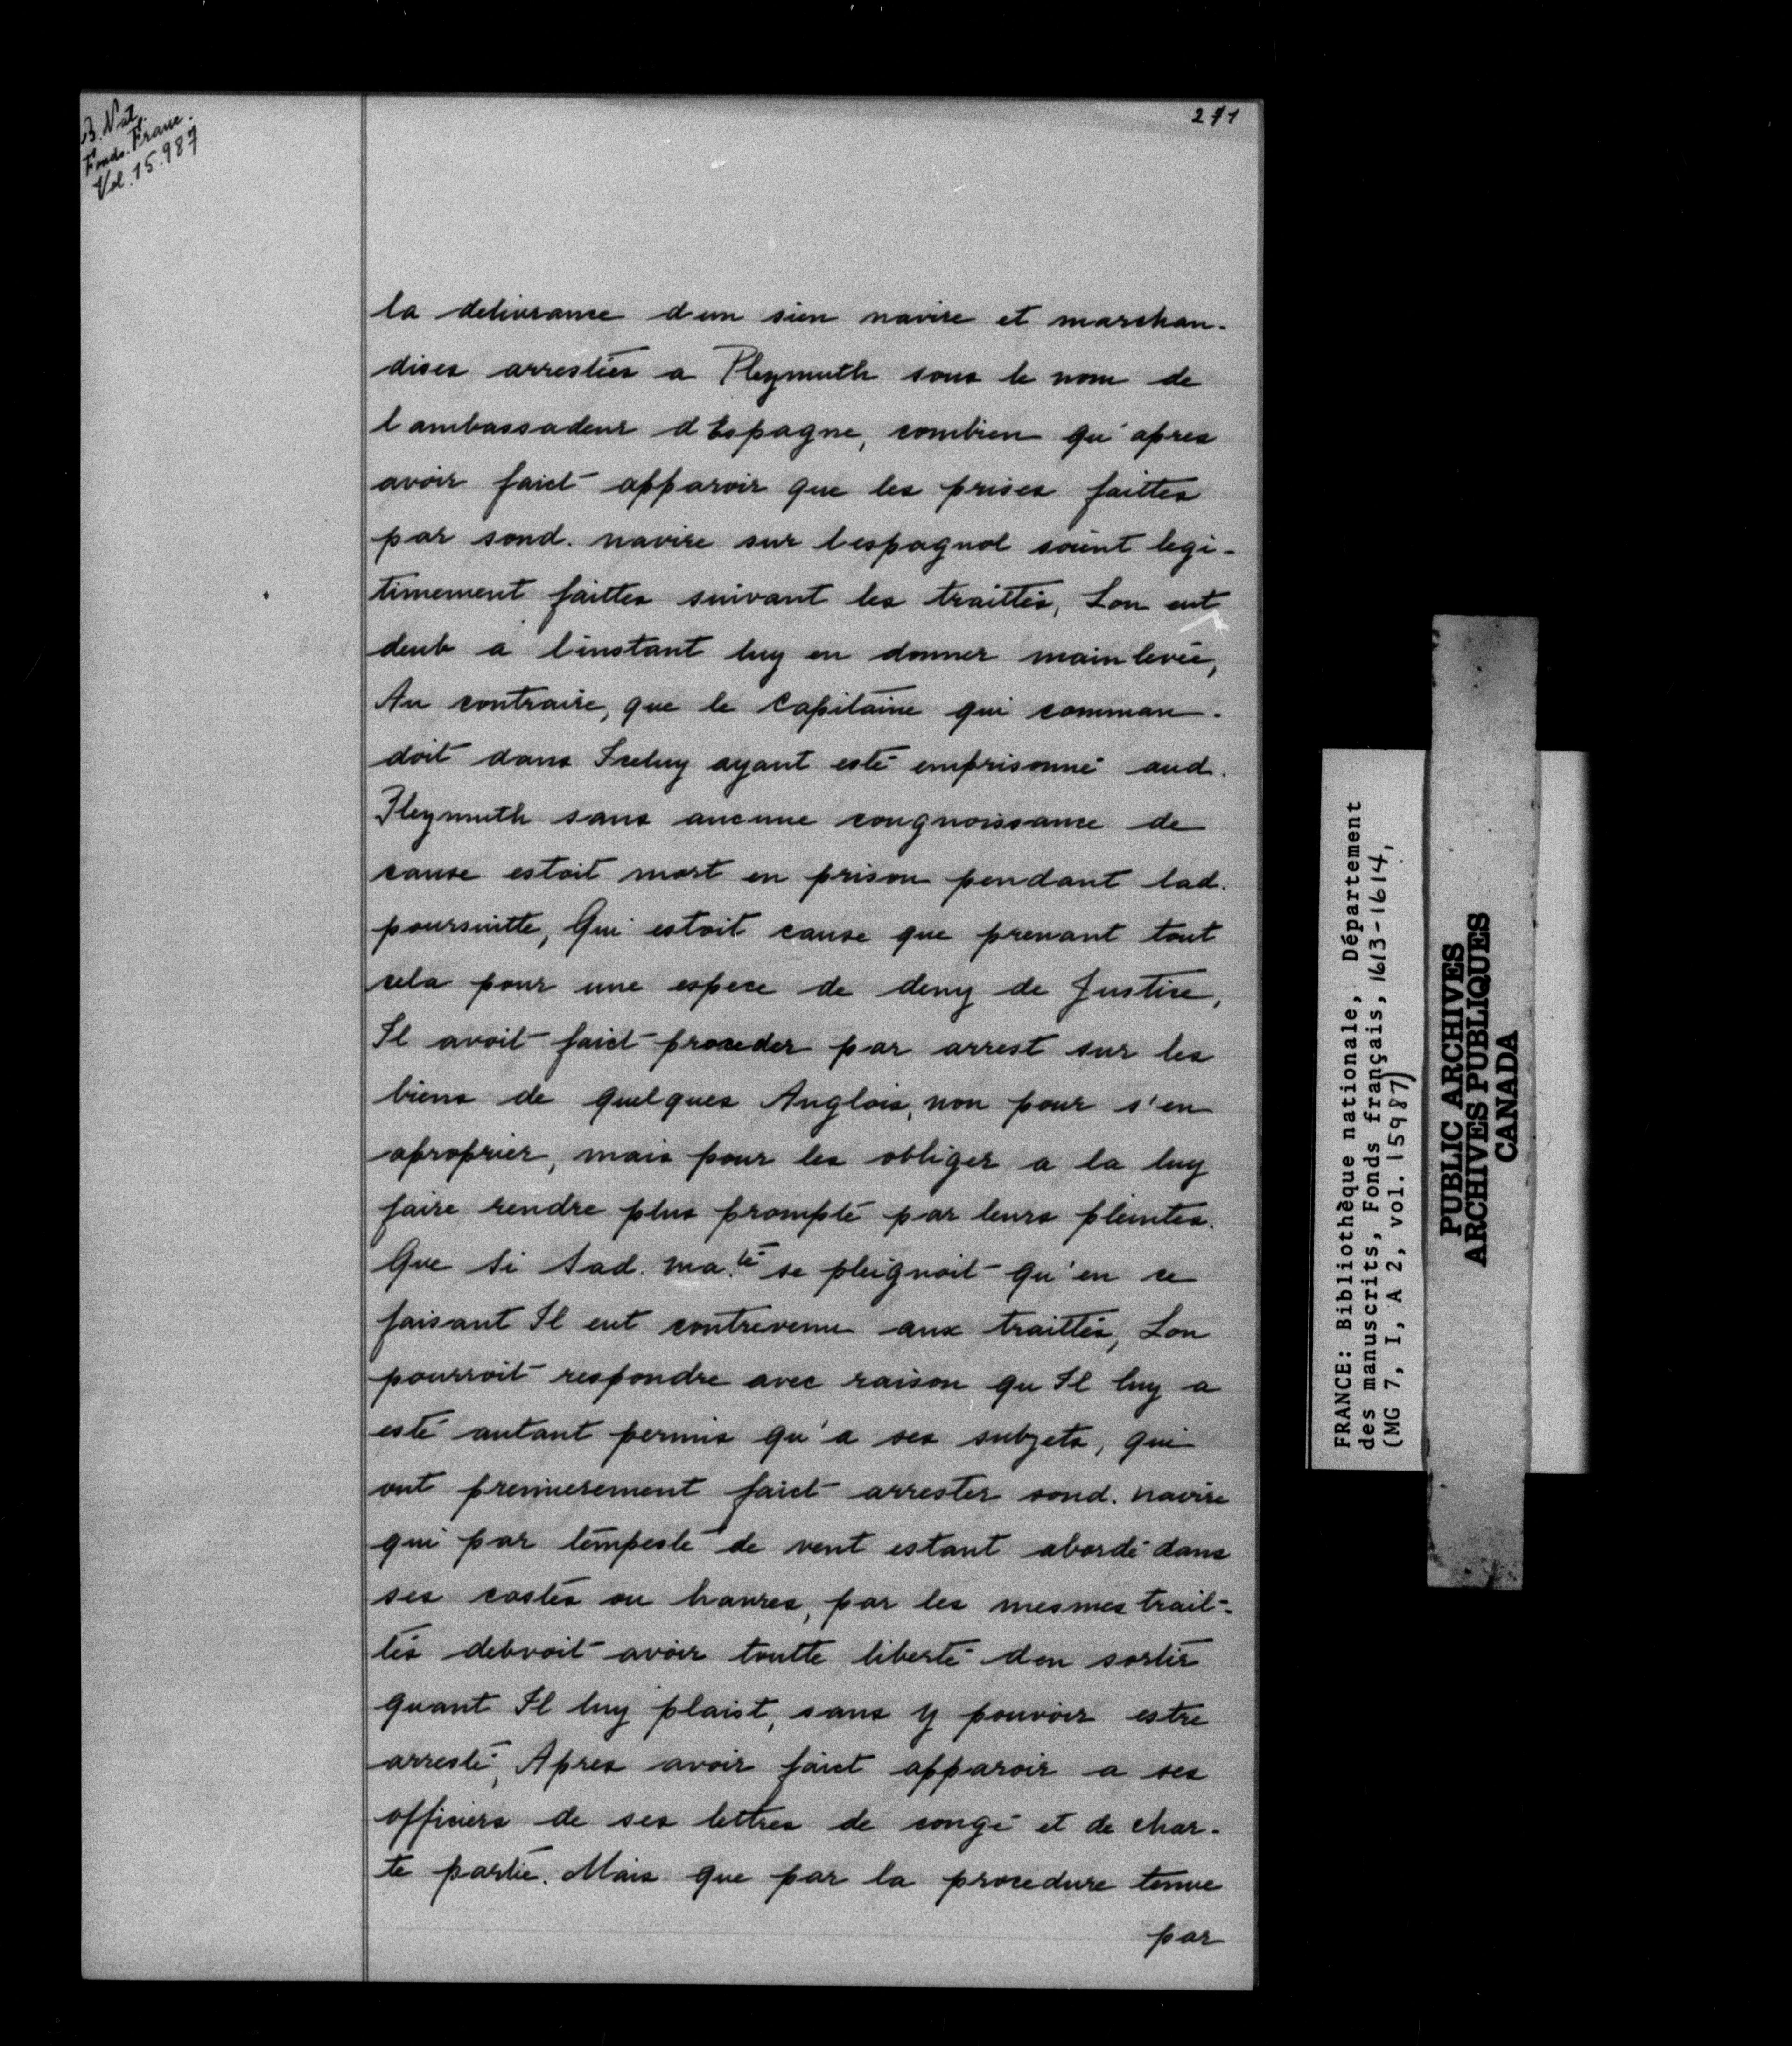 B. Nat.
Fonds. Franc.
Vol. 15.987
271
la delivrance dun sien navire et marchan-
dises arrestées a Pleymuth sous le nom de
l ambassadeur d Espagne, combien qu'apres
avoir faict apparoir que les prises faittes
par sond. navire sur lespagnol soient legi-
timement faittes suivant les traittés, Lon eut
deub a linstant luy en donner main levée,
Au contraire, que le Capitaine qui comman-
doit dans Iceluy ayant esté emprisonné aud.
Pleymuth sans aucune congnoissance de
cause estoit mort en prison pendant lad.
poursuitte, Qui estoit cause que prenant tout
cela pour une espece de deny de Justice,
Il avoit faict proceder par arrest sur les
biens de quelques Anglois, non pour s'en
aproprier, mais pour les obliger a la luy
faire rendre plus prompte par leurs pleintes.
Que si sad. ma.té se pleignoit qu'en ce
faisant Il eut contrevenu aux traittés, Lon
pourroit respondre avec raison qu Il luy a
esté autant permis qu'a ses subjets, qui
ont premierement faict arrester sond. navire
qui par tempeste de vent estant abordé dans
ses costes ou havres, par les mesmes trait-
tés debvoit avoir toutte liberté den sortir
quant Il luy plaist, sans y pouvoir estre
arresté, Apres avoir faict apparoir a ses
officiers de ses lettres de congé et de char-
te partie. Mais que par la procedure tenue
par
FRANCE: Bibliothèque nationale, Département
des manuscrits, Fonds français, 1613-1614,
(MG 7, I, A 2, vol. 15987)
PUBLIC ARCHIVES
ARCHIVES PUBLIQUES
CANADA